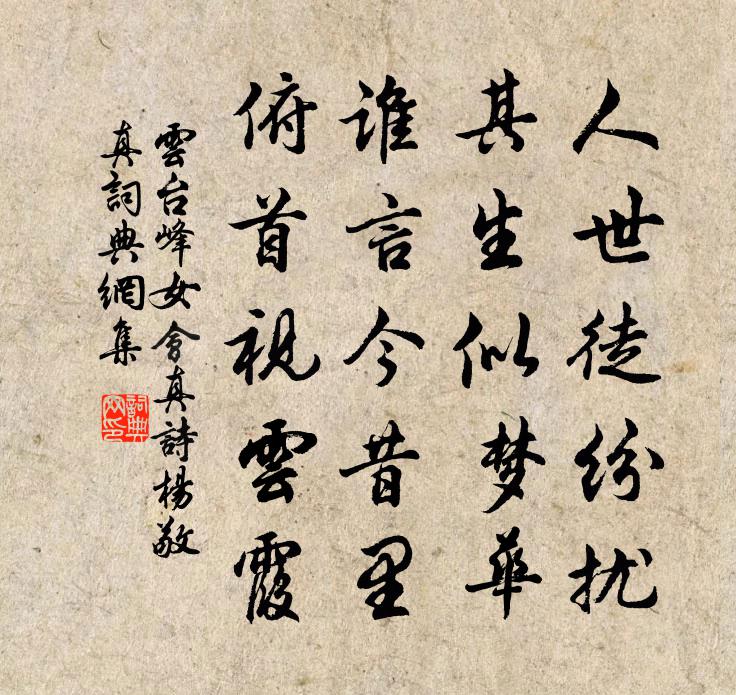 人世徒纷扰
其生似梦華
谁言今昔里
俯首視雲霞
雲台峰女會真詩楊敬
真詞典網集
詞典網印